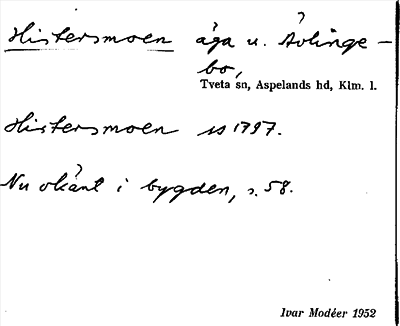 Histersmoen åga u. Åvlinge-
bo,
Tveta sn, Aspelands hd, Klm. l.
Histersmoen ss 1797.
Nu okänt i bygden, s. 58.
Ivar Modéer 1952